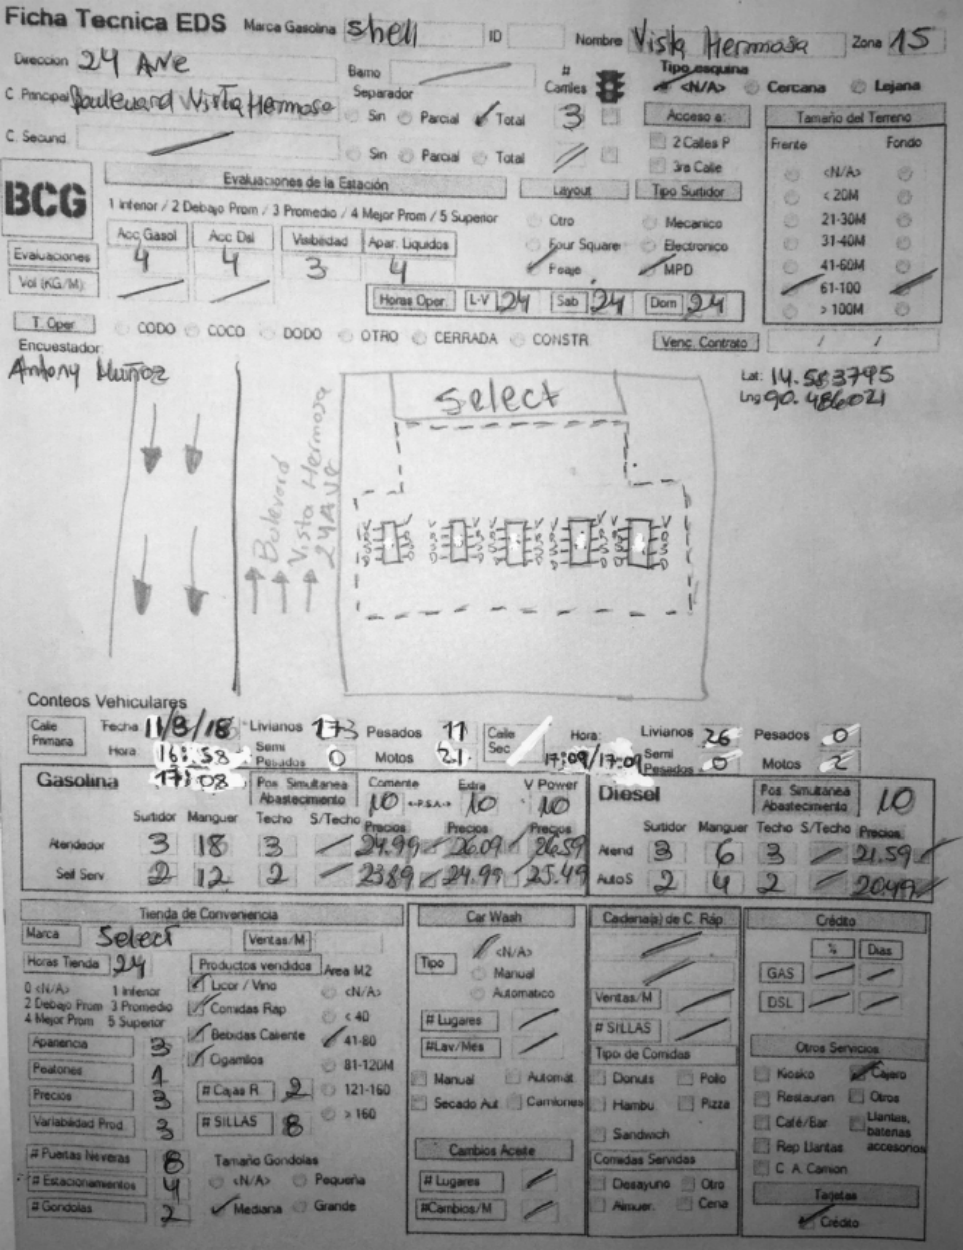 Ficha Tecnica EDS Marca Gasolina Shell ID Nombre Vista Hermosa Zona 15
Direccion 24 Ave Barrio # Carriles Tipo esquina
C Principal Boulevard Vista Hermosa Separador <N/A> Cercana Lejana
Sin Parcial Total 3 Acceso a: Tamaño del Terreno
C. Secund. 2 Calles P Frente Fondo
Sin Parcial Total 3ra Calle <N/A>
BCG Evaluaciones de la Estación Layout Tipo Surtidor < 20M
1 Inferior / 2 Debajo Prom / 3 Promedio / 4 Mejor Prom / 5 Superior Otro Mecanico 21-30M
Acc Gasol Acc Dsl Visibilidad Apar. Liquidos Four Square Electronico 31-40M
Evaluaciones 4 4 3 4 Peaje MPD 41-60M
Vol (KG/M) 61-100
Horas Oper. L-V 24 Sab 24 Dom 24 > 100M
T. Oper. CODO COCO DODO OTRO CERRADA CONSTR Venc. Contrato / /
Encuestador:
Antony Muñoz
Lat: 14.583795
Lng 90.486021
Select
Bulevard
Vista Hermosa
24 Ave
V R S D
Conteos Vehiculares
Calle Primaria Fecha 11/8/18 Livianos 173 Pesados 11 Calle Sec Hora: Livianos 26 Pesados 0
Hora: 16:58 Semi Pesados 0 Motos 21 17:09/17:09 Semi Pesados 0 Motos 2
17:08
Gasolina Pos Simultanea Abastecimiento Corriente 10 <-P.S.A.-> Extra 10 V Power 10 Diesel Pos Simultanea Abastecimiento 10
Surtidor Manguer Techo S/Techo Precios Precios Precios Surtidor Manguer Techo S/Techo Precios
Atendedor 3 18 3 24.99 26.09 26.59 Atend 3 6 3 21.59
Self Serv 2 12 2 23.89 24.99 25.49 AutoS 2 4 2 20.49
Tienda de Conveniencia Car Wash Cadena(s) de C. Ráp Crédito
Marca Select Ventas/M <N/A> % Dias
Horas Tienda 24 Productos vendidos Area M2 Tipo Manual GAS
0 <N/A> 1 Inferior Licor / Vino <N/A> Automatico Ventas/M DSL
2 Debajo Prom 3 Promedio Comidas Rap < 40 # Lugares # SILLAS
4 Mejor Prom 5 Superior Bebidas Caliente 41-80 #Lav/Mes Tipo de Comidas Otros Servicios
Apariencia 3 Cigarrillos 81-120M Manual Automát Donuts Pollo Kiosko Cajero
Peatones 1 # Cajas R 2 121-160 Secado Aut Camiones Hambu Pizza Restauran Otros
Precios 3 # SILLAS 8 > 160 Sandwich Café/Bar Llantas, baterias accesorios
Variabilidad Prod 3 Cambios Aceite Comidas Servidas Rep Llantas
# Puertas Neveras 8 Tamaño Gondolas # Lugares Desayuno Otro C. A. Camion
# Estacionamientos 4 <N/A> Pequeña #Cambios/M Almuer. Cena Tarjetas
# Gondolas 2 Mediana Grande Crédito